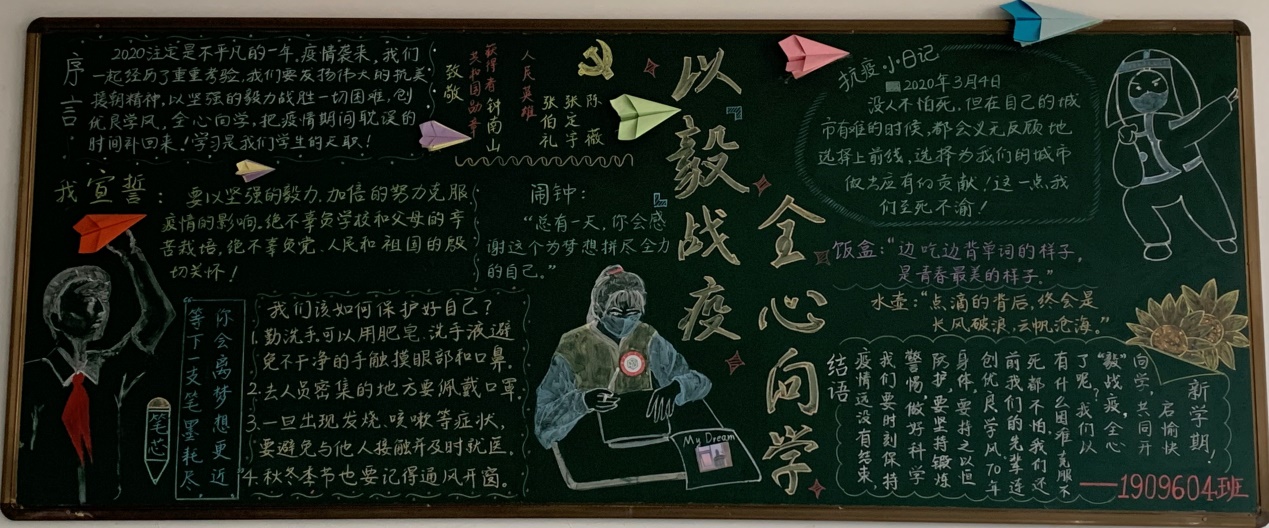 序言:
2020注定是不平凡的一年,疫情袭来,我们
一起经历了重重考验,我们要发扬伟大的抗美
援朝精神,以坚强的毅力战胜一切困难,创
优良学风,全心向学,把疫情期间耽误的
时间补回来!学习是我们学生的天职!
致敬
获得者钟南山
共和国勋章
人民英雄
张伯礼
张定宇
陈薇
以毅战疫
全心向学
抗疫小日记
2020年3月4日
没人不怕死,但在自己的城
市有难的时候,都会义无反顾地
选择上前线,选择为我们的城市
做出应有的贡献!这一点我
们至死不渝!
我宣誓:
要以坚强的毅力,加倍的努力克服
疫情的影响。绝不辜负学校和父母的辛
苦栽培,绝不辜负党、人民和祖国的殷
切关怀!
闹钟:
“总有一天,你会感
谢这个为梦想拼尽全力
的自己。”
饭盒:“边吃边背单词的样子,
是青春最美的样子。”
水壶:“点滴的背后,终会是
长风破浪,云帆沧海。”
“等下一支笔墨耗尽
你会离梦想更近
笔芯
我们该如何保护好自己?
1.勤洗手可以用肥皂、洗手液避
免不干净的手触摸眼部和口鼻。
2.去人员密集的地方要佩戴口罩。
3.一旦出现发烧、咳嗽等症状,
要避免与他人接触并及时就医。
4.秋冬季节也要记得通风开窗。
My Dream
结语
疫情远没有结束,
我们要时刻保持
警惕,做好科学
防护,要坚持锻炼
身体,要持之以恒
创优良学风,70年
前我们的先辈连
死都不怕,我们还
有什么困难克服不
了呢?我们以
“毅”战疫,全心
向学,共同开
启愉快
新学期!
——1909604班